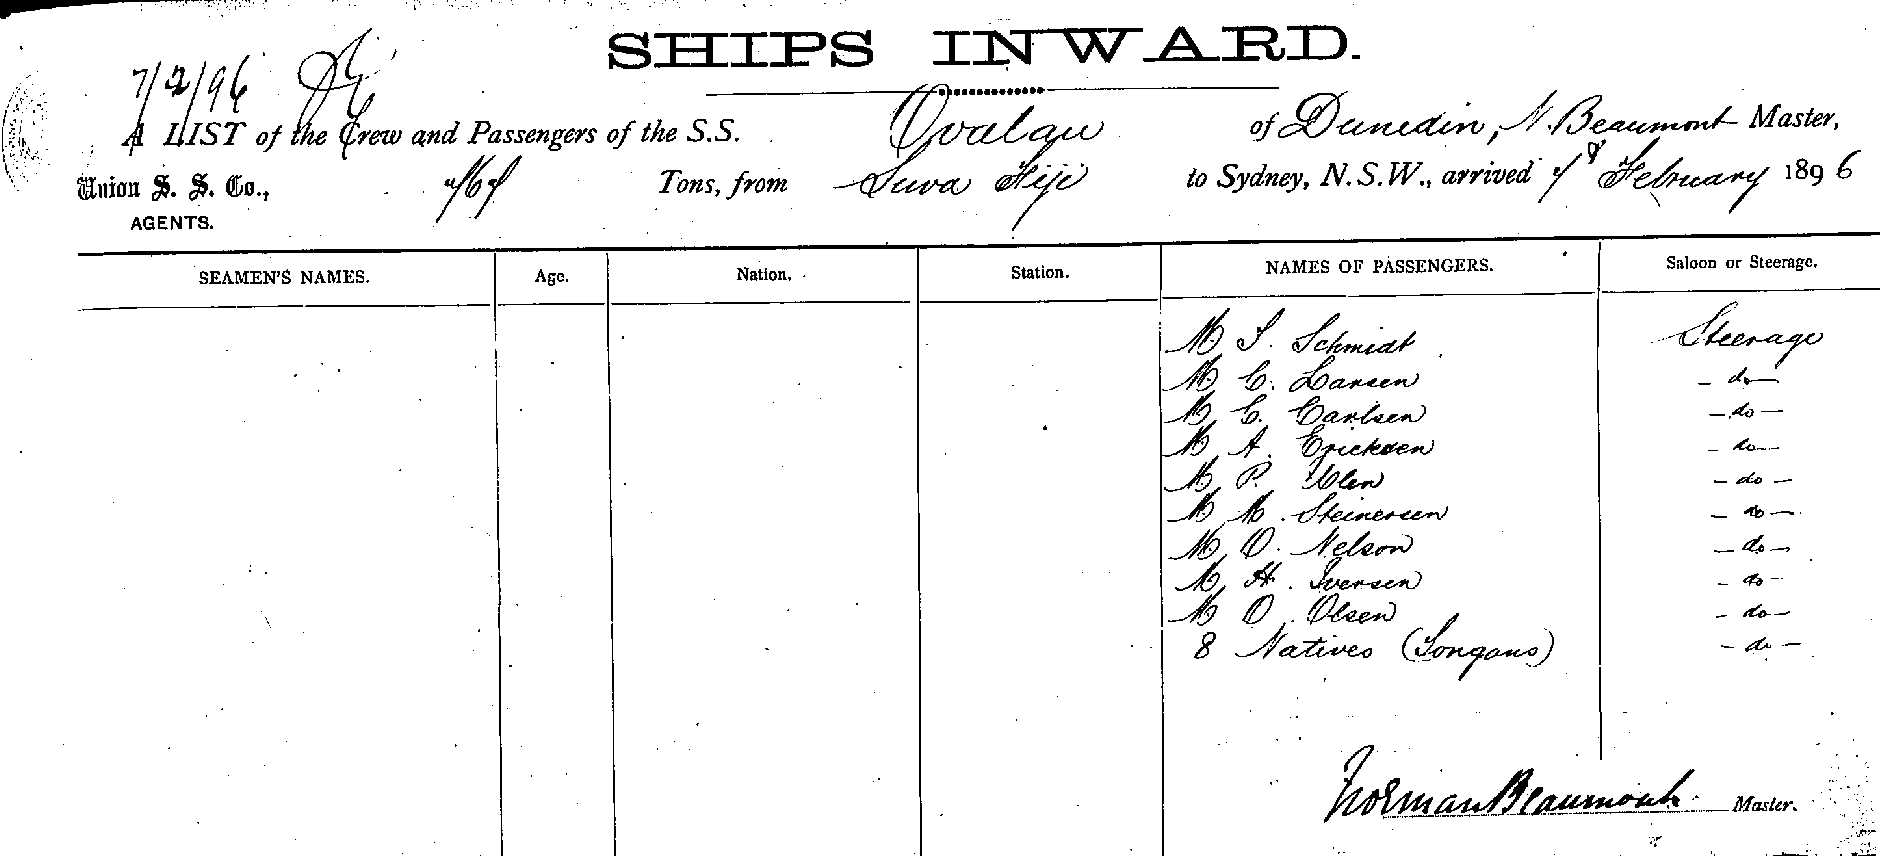 SHIPS INWARD.
7/2/96
A LIST of the Crew and Passengers of the S.S. Ovalau of Dunedin, N. Beaumont Master,
Union S. S. Co., Tons, from Suva Fiji to Sydney, N.S.W., arrived February 1896
AGENTS.
SEAMEN'S NAMES. Age. Nation. Station. NAMES OF PASSENGERS. Saloon or Steerage.
M S. Schmidt Steerage
M C. Larsen - do -
M C. Carlsen - do -
M A. Ericksen - do -
M P. - do -
M M. Steinersen - do -
M O. Nelson - do -
M H. Iversen - do -
M O. Olsen - do -
8 Natives (Tongans) - do -
Norman Beaumont Master.